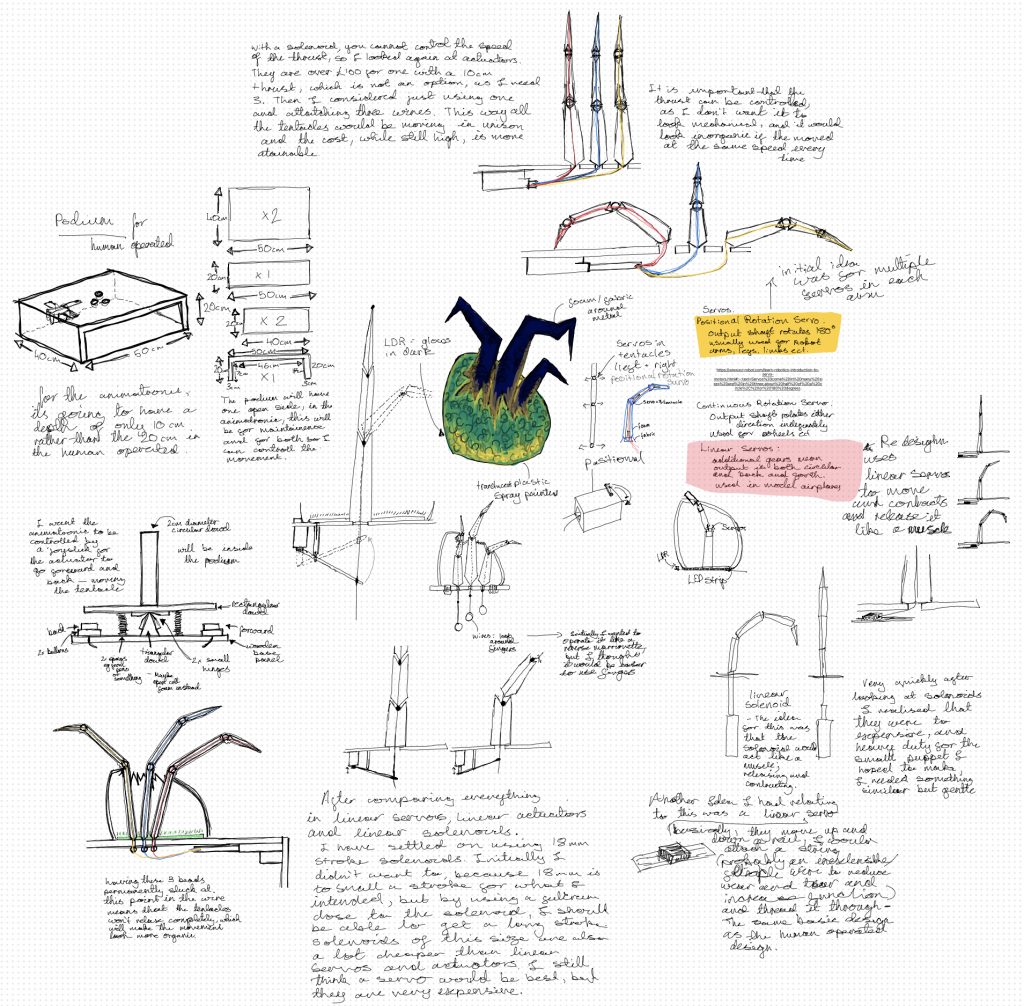 with a solenoid, you cannot control the speed
of the thrust, so I looked again at actuators.
They are over £100 for one with a 10cm
thrust, which is not an option, as I need
3. Then I considered just using one
and attatching three wires. This way all
the tentacles would be moving in unison
and the cost, while still high, is more
atainable
It is important that the
thrust can be controlled,
as I don't want it to
look mechanical, and it would
look inorganic if the moved
at the same speed every
time
Podium for
human operated
40cm
x 2
50cm
20cm
x 1
50cm
20cm
x 2
40cm
50cm
46cm
20cm
x 1
3cm
3cm
20cm
40cm
50cm
for the animatronic,
its going to have a
depth of only 10cm
rather than the 20cm in
the human operated.
The podium will have
one open side, in the
animatronic, this will
be for maintainence
and for both so I
can controll the
movement.
LDR = glows
in dark
foam/fabric
around
metal
translucent plastic
spray painted
Servos in
tentacles
left + right
positional rotation
servo
Positional
initial idea
was for multiple
servos in each
arm
Servos.
Positional Rotation Servo.
output shaft rotates 180°
usually used for robot
arms, legs, limbs ect.
Continuous Rotation Servo.
Output shaft rotates either
direction indefinately
used for wheels ect
Linear Servos:
additional gears mean
output is both circular
and back and forth.
used in model airplanes
Redesign
uses
linear servo
to move
and contracts
and release it
like a muscle
Servos
LDR
LED strip
I want the
animatronic to be
controlled by
a joystick for
the actuator to
go foreward and
back - moving
the tentacle
2cm diameter
circular dowel
will be inside
the podium
rectangular
dowel
back
forward
2x buttons
2 springs
or foam
something
triangular
dowel
- Maybe
foam instead
2x small
hinges
wooden
base
panel
wires: loop
around
fingers
Initially I wanted to
operate it like a
reverse marionette,
but I thought
it would be harder
to use fingers
linear
solenoid
- The idea
for this was
that the
solenoid would
act like a
muscle,
releasing and
contracting.
Very quickly after
looking at solenoids
I realised that
they were to
expensive, and
heavy duty for the
small puppet I
hoped to make
I needed something
similar but gentle
having these 3 beads
permanently stuck at
this point in the wire
means that the tentacles
won't release completely, which
will make the movement
look more organic
After comparing everything
in linear servos, linear actuators
and linear solenoids.
I have settled on using 18mm
stroke solenoids. Initially I
didn't want to, because 18mm is
to small a stroke for what I
intended, but by using a fulcrum
close to the solenoid, I should
be able to get a long stroke
solenoids of this size are also
a lot cheaper than linear
servos and actuators. I still
think a servo would be best, but
they are very expensive.
Another idea I had relating
to this was a linear servo
Basically, they move up and
down a rail, I would
attach a string
(probably an inextensible
wire to reduce
wear and tear and
increase function)
and thread it through -
The same basic design
as the human operated
design.